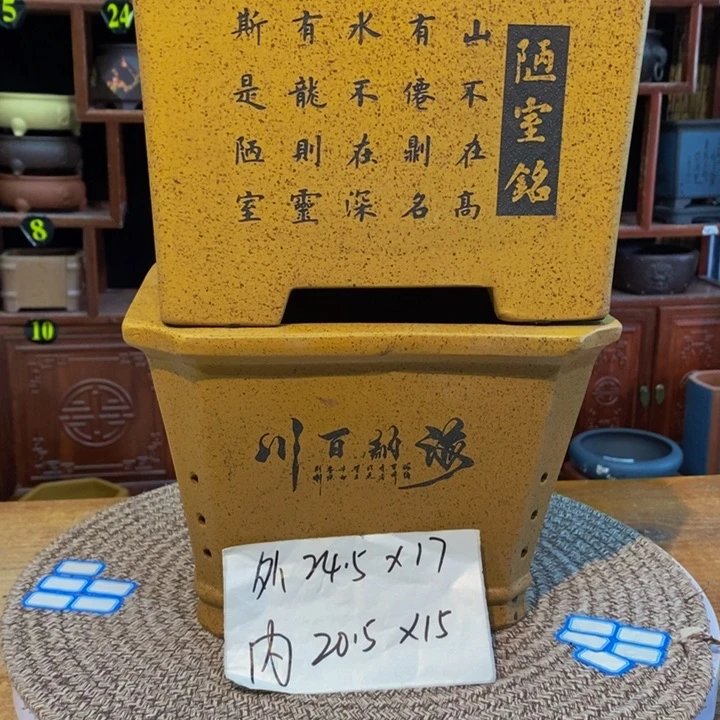 陋室銘
山不在高
有僊剘名
水不在深
有龍則靈
斯是陋室
海納百川
外 24.5 x 17
内 20.5 x 15
5
24
8
10